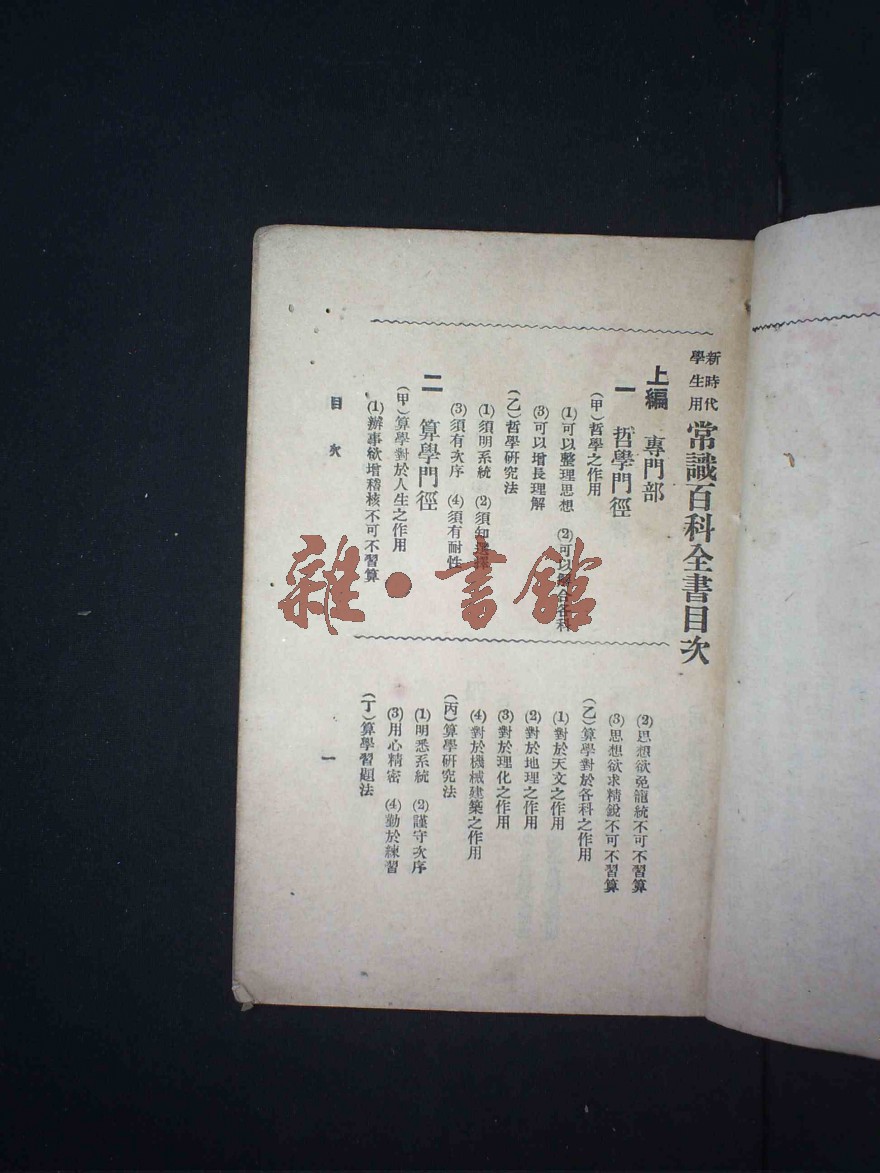 新時代
學生用
常識百科全書目次
上編　專門部
一　哲學門徑
(甲)哲學之作用
(1)可以整理思想　(2)可以解合各科
(3)可以增長理解
(乙)哲學研究法
(1)須明系統　(2)須知選擇
(3)須有次序　(4)須有耐性
二　算學門徑
(甲)算學對於人生之作用
(1)辦事欲增稽核不可不習算
(2)思想欲免籠統不可不習算
(3)思想欲求精銳不可不習算
(乙)算學對於各科之作用
(1)對於天文之作用
(2)對於地理之作用
(3)對於理化之作用
(4)對於機械建築之作用
(丙)算學研究法
(1)明悉系統　(2)謹守次序
(3)用心精密　(4)勤於練習
(丁)算學習題法
目次
一
雜·書館